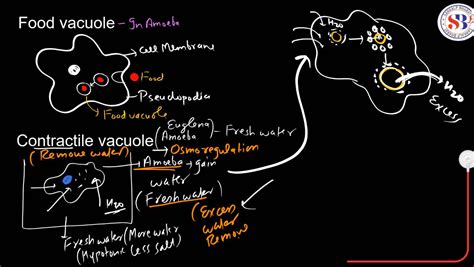 Food vacuole - In Amoeba
Cell Membrane
Food
Pseudopodia
Food vacuole
Contractile vacuole
(Remove water)
(Euglena
Amoeba) - Fresh water
Osmoregulation
Amoeba → gain
water
(Fresh water)
(Excess
water
Remove
H2O
Fresh water (More water
(Hypotonic Less salt)
H2O
H2O
Excess
SB